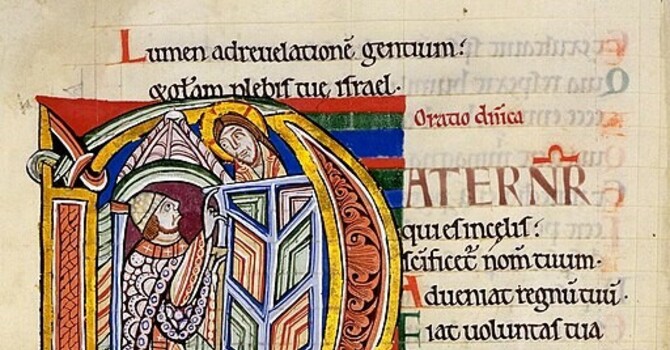 Lumen adreuelationē gentium:
&glam plebis tue israel.
Oratio dnica
PATERNR
quiesincelis:
scificet nom̄ tuum.
Adueniat regnū tuū.
Fiat uoluntas tua